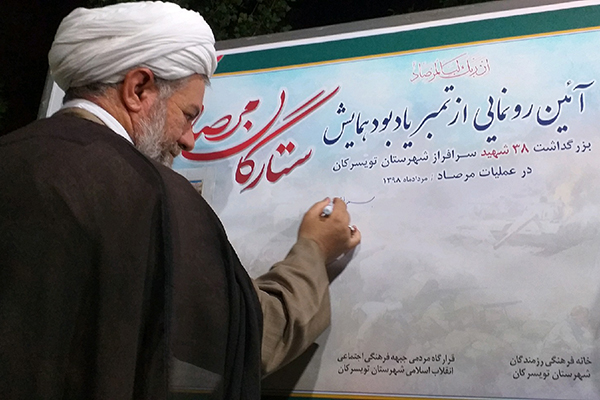 ان ربک لبالمرصاد
آئین رونمایی از تمبر یادبود همایش
ستارگان مرصاد
بزرگداشت ۳۸ شهید سرافراز شهرستان تویسرکان
در عملیات مرصاد / مردادماه ۱۳۹۸
خانه فرهنگی رزمندگان
شهرستان تویسرکان
قرارگاه مردمی جبهه فرهنگی اجتماعی
انقلاب اسلامی شهرستان تویسرکان